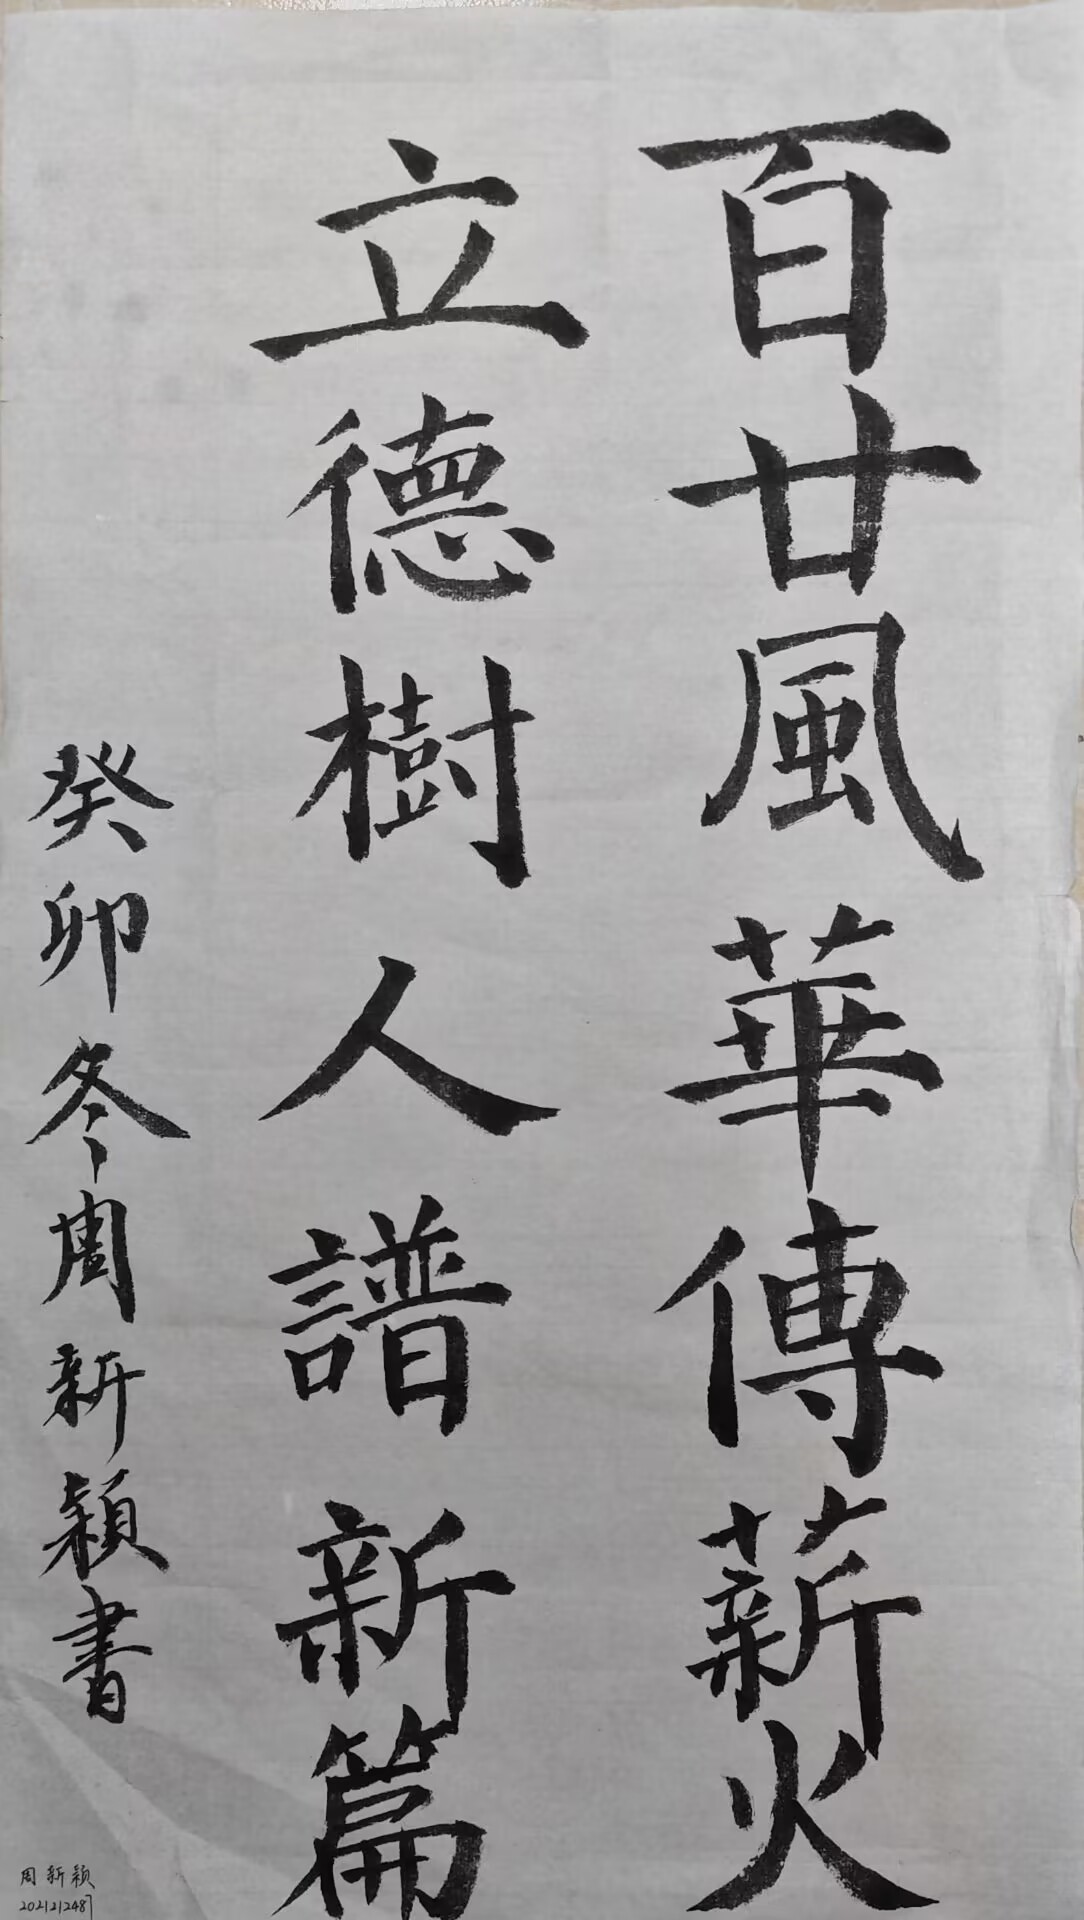 百廿風華傳薪火
立德樹人譜新篇
癸卯冬周新穎書
周新颖
2021212487